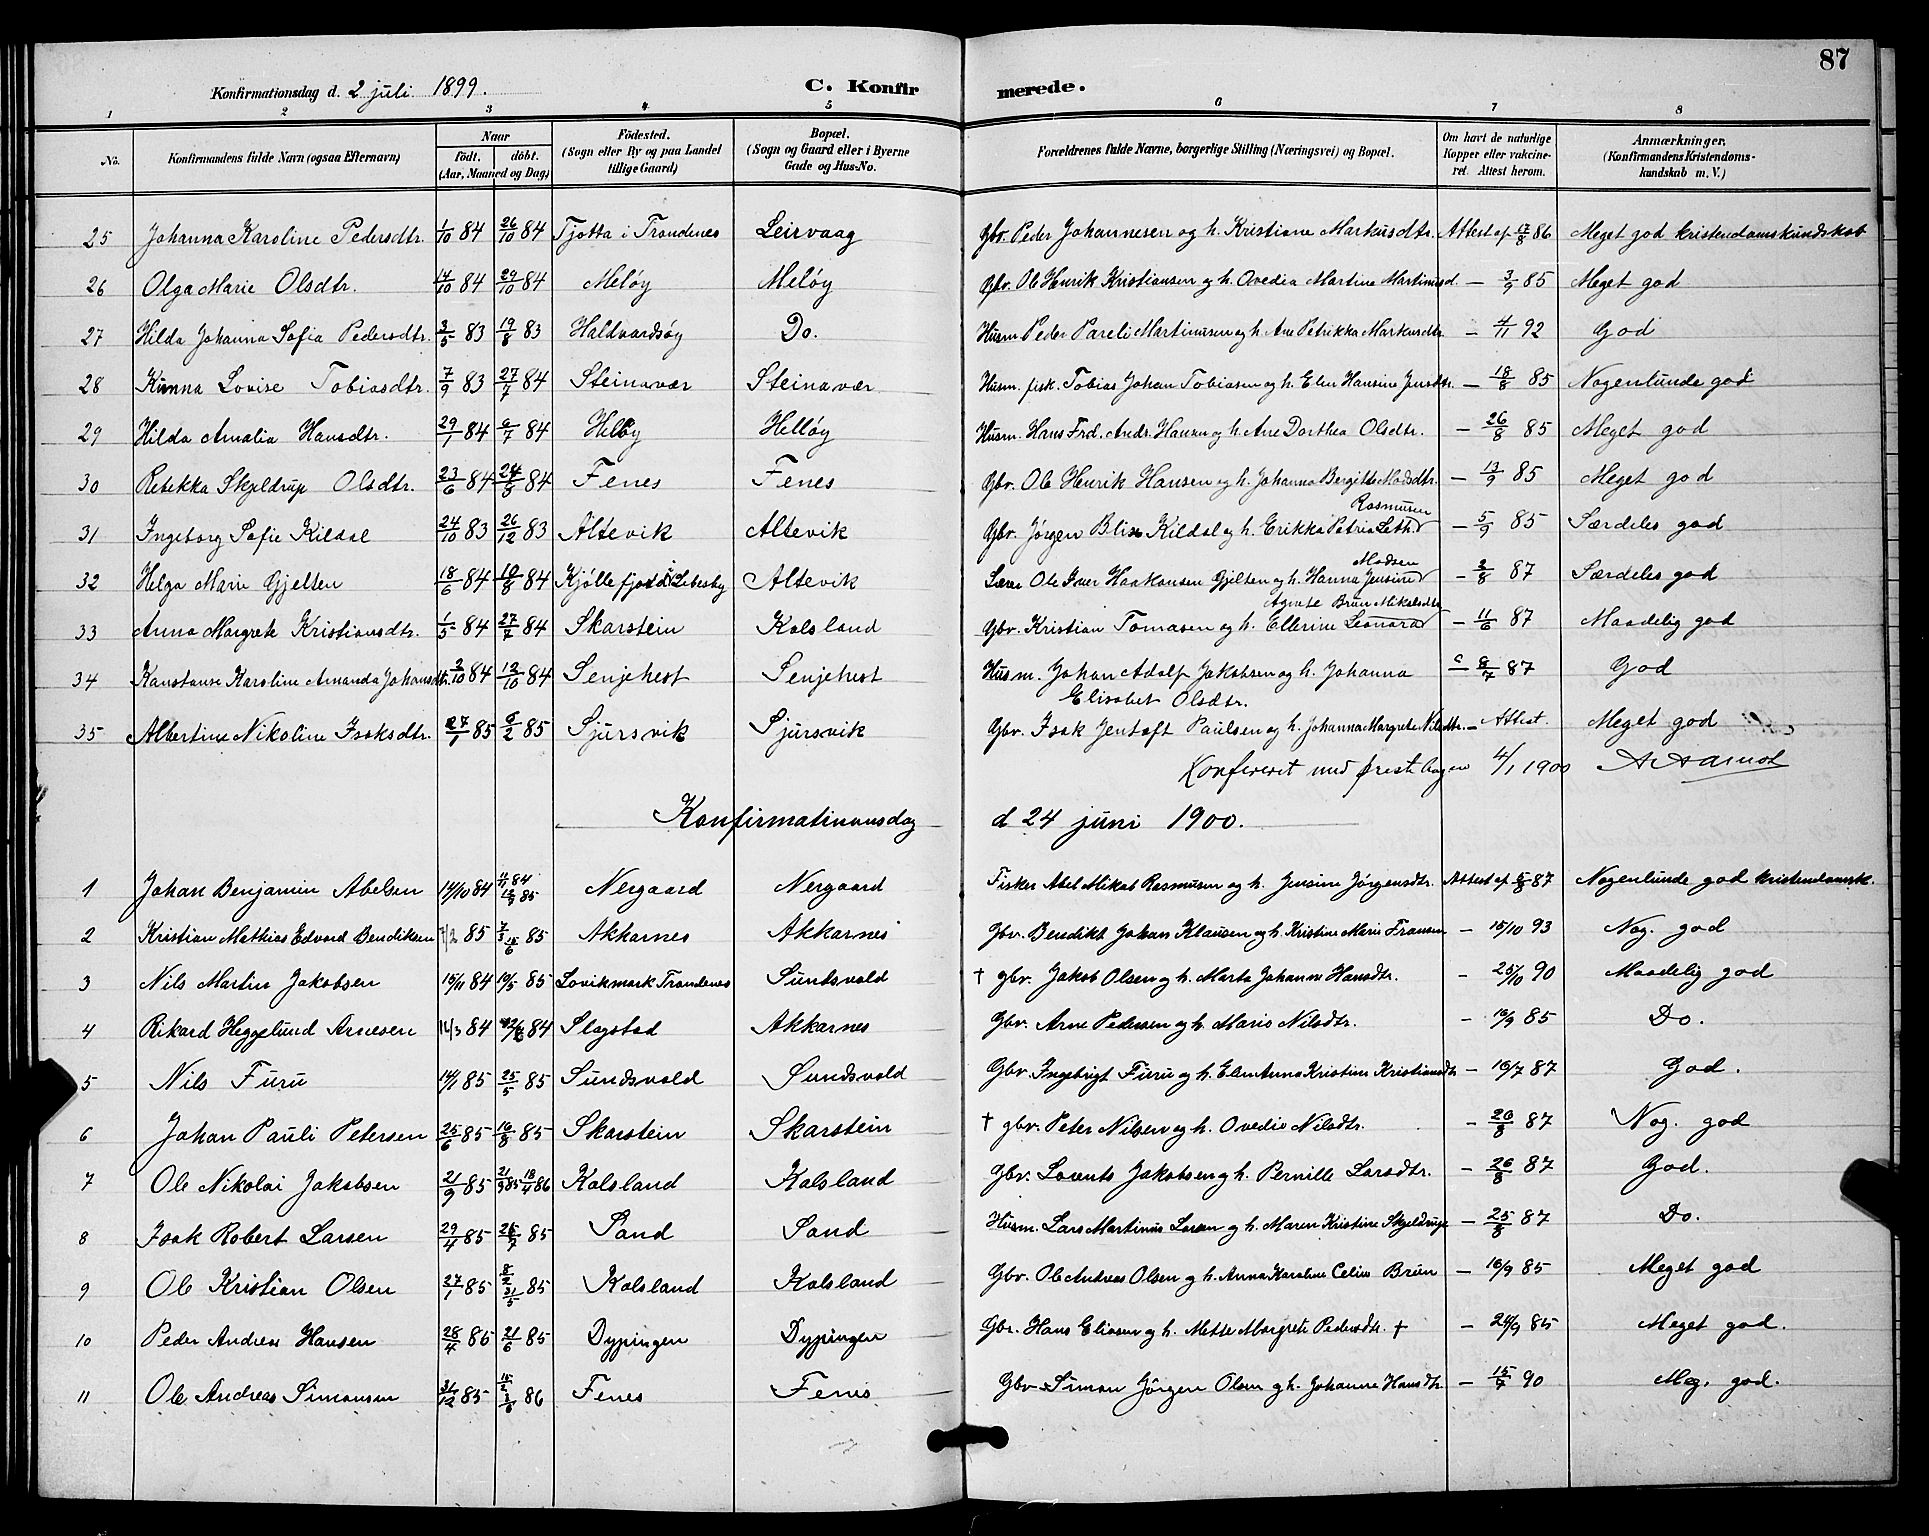 87
Konfirmationsdag d. 2 juli 1899. C. Konfirmerede.
1 2 3 4 5 6 7 8
No. Konfirmandens fulde Navn (ogsaa Efternavn) Naar födt. döbt. (Aar, Maaned og Dag) Födested. (Sogn eller By og paa Landet tillige Gaard) Bopæl. (Sogn og Gaard eller i Byerne Gade og Hus-No. Forældrenes fulde Navne, borgerlige Stilling (Næringsvei) og Bopæl. Om havt de naturlige Kopper eller vakcineret. Attest herom. Anmærkninger. (Konfirmandens Kristendomskundskab m. V.)
25 Johanna Karoline Pedersdtr. 1/10 84 26/10 84 Tjotta i Trondenes Leirvaag Gbr. Peder Johannesen og h. Kristiane Markusdtr. Attest af 17/8 86 Meget god kristendomskundskab
26 Olga Marie Olsdtr. 14/10 84 29/10 84 Meløy Meløy Gbr. Ole Henrik Kristiansen og h. Ovedia Martine Martinusd. — 3/9 85 Meget god
27 Hilda Johanna Sofia Pedersdtr. 3/5 83 19/8 83 Haldvardsøy Do. Husm. Peder Pareli Martinusen og h. Ane Petrikka Markusdtr. — 4/11 92 God
28 Kinna Lovise Tobiasdtr. 7/9 83 27/7 84 Steinavær Steinavær Husm. fisk. Tobias Johan Tobiasen og h. Elen Hansine Jensdtr. — 18/8 85 Nogenlunde god
29 Hilda Amalia Hansdtr. 29/1 84 6/7 84 Helløy Helløy Husm. Hans Frd. Andr. Hansen og h. Ane Dorthea Olsdtr. — 26/8 85 Meget god
30 Rebekka Skjeldrup Olsdtr. 23/6 84 24/8 84 Fenes Fenes Gbr. Ole Henrik Hansen og h. Johanna Bergitte Madsdtr. — 13/9 85 Meget god
31 Ingeborg Sofie Kildal 24/10 83 26/12 83 Altevik Altevik Gbr. Jørgen Blix Kildal og h. Erikka Petria Leth Rasmusen — 5/9 85 Særdeles god
32 Helga Marie Gjelsen 18/6 84 10/8 84 Kjøllefjord i Lebesby Altevik Lærer Ole Iver Haakonsen Gjelsen og h. Hanna Jensine Madsen — 2/8 87 Særdeles god
33 Anna Margrete Kristiansdtr. 1/5 84 27/7 84 Skarstein Kalsland Gbr. Kristian Tomasen og h. Ellerine Leonara Agnete Brun Mikalsdtr — 11/6 87 Maadelig god
34 Konstanse Karoline Amanda Johansdtr. 2/10 84 12/10 84 Senjehest Senjehest Husm. Johan Adolf Jakobsen og h. Johanna 8/7 87 God
Elisabet Olsdtr.
35 Albertine Nikoline Isaksdtr. 27/1 85 6/2 85 Sjursvik Sjursvik Gbr. Isak Jentoft Paulsen og h. Johanna Margrete Nilsdtr. — Attest. Meget god
Konfereret med presteboger 4/1 1900 A Aarnot
Konfirmationsdag d 24 juni 1900.
1 Johan Benjamin Abelsen 14/10 84 4/11 84 12/9 85 Nergaard Nergaard Fisker Abel Mikal Rasmusen og h. Jensine Jørgensdtr. Attest af 5/8 87 Nogenlunde god kristendomsk.
2 Kristian Mathias Edvard Bendiksen 7/2 85 7/3 14/6 85 Akkarnes Akkarnes Gbr. Benedikt Johan Klausen og h. Kristine Marie Fransen — 15/10 93 Nog. god
3 Nils Martin Jakobsen 15/11 84 10/5 85 Lovikmark Trondenes Sundsvold † gbr. Jakob Olsen og h. Marta Johanna Hansdtr. — 25/10 90 Maadelig god
4 Rikard Heggelund Arnesen 14/3 84 84 Slagstad Akkarnes Gbr. Arne Pedersen og h. Marie Nilsdtr. — 16/9 85 Do.
5 Nils Furu 14/1 85 25/5 85 Sundsvold Sundsvold Gbr. Ingebrigt Furu og h. Elen Anna Kristine Kristiansdtr — 16/7 87 God.
6 Johan Pauli Petersen 25/6 85 16/8 85 Skarstein Skarstein † gbr. Peter Nilsen og h. Ovedie Nilsdtr. — 26/8 87 Nog. god
7 Ole Nikolai Jakobsen 21/9 85 21/9 85 18/4 86 Kalsland Kalsland Gbr. Lorents Jakobsen og h. Pernille Larsdtr. — 26/8 87 God.
8 Isak Robert Larsen 29/4 85 26/7 85 Sand Sand Husm. Lars Martinus Larsen og h. Maren Kristine Skjeldrup — 25/8 87 Do.
9 Ole Kristian Olsen 27/1 85 8/2 31/5 85 Kalsland Kalsland Gbr. Ole Andreas Olsen og h. Anna Karoline Celius Brun — 16/9 85 Meget god
10 Peder Andreas Hansen 28/4 85 21/6 85 Dypingen Dypingen Gbr. Hans Eliasen og h. Mette Margrete Pedersdtr. † — 24/9 85 Meget god.
11 Ole Andreas Simonsen 31/12 85 15/2 86 Fenes Fenes Gbr. Simon Jørgen Olsen og h. Johanne Hansdtr. — 15/7 90 Meg. god.